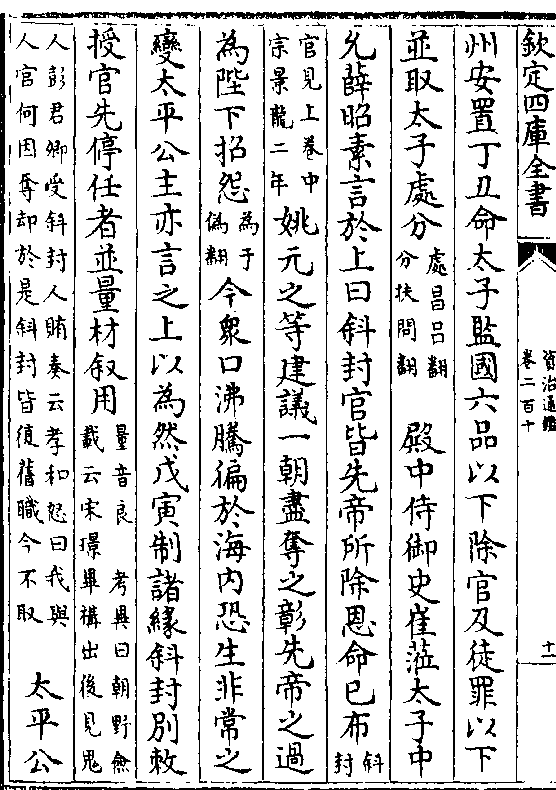 欽定四庫全書
資治通鑑
卷二百十
十一
州安置丁丑命太子監國六品以下除官及徒罪以下
並取太子處分處昌呂翻分扶問翻殿中侍御史崔蒞太子中
允薛昭素言於上曰斜封官皆先帝所除恩命已布斜封
官見上卷中宗景龍二年姚元之等建議一朝盡奪之彰先帝之過
為陛下招怨為于偽翻今衆口沸騰徧於海內恐生非常之
變太平公主亦言之上以為然戊寅制諸緣斜封別敕
授官先停任者並量材叙用量音良考異曰朝野僉載云宋璟畢構出後見鬼
人彭君卿受斜封人賄奏云孝和怒曰我與人官何因奪却於是斜封皆復舊職今不取太平公